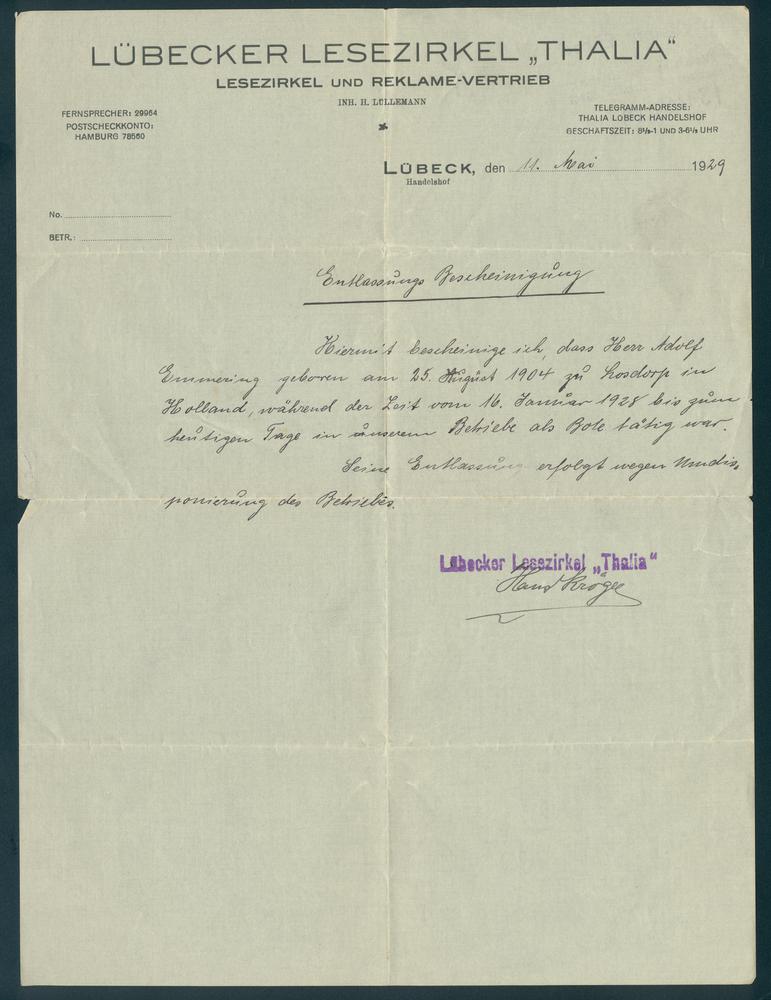 LÜBECKER LESEZIRKEL „THALIA“
LESEZIRKEL UND REKLAME-VERTRIEB
INH. H. LÜLLEMANN
FERNSPRECHER: 29964
POSTSCHECKKONTO:
HAMBURG 78560
TELEGRAMM-ADRESSE:
THALIA LÜBECK HANDELSHOF
GESCHÄFTSZEIT: 8½-1 UND 3-6½ UHR
LÜBECK, den 11. Mai 1929
Handelshof
No.
BETR.:
Entlassungs Bescheinigung
Hiermit bescheinige ich, dass Herr Adolf
Emmering geboren am 25. August 1904 zu Losdorp in
Holland, während der Zeit vom 16. Januar 1928 bis zum
heutigen Tage in unserem Betriebe als Bote tätig war.
Seine Entlassung erfolgt wegen Umdis-
ponierung des Betriebes.
Lübecker Lesezirkel „Thalia“
Hans Kröger